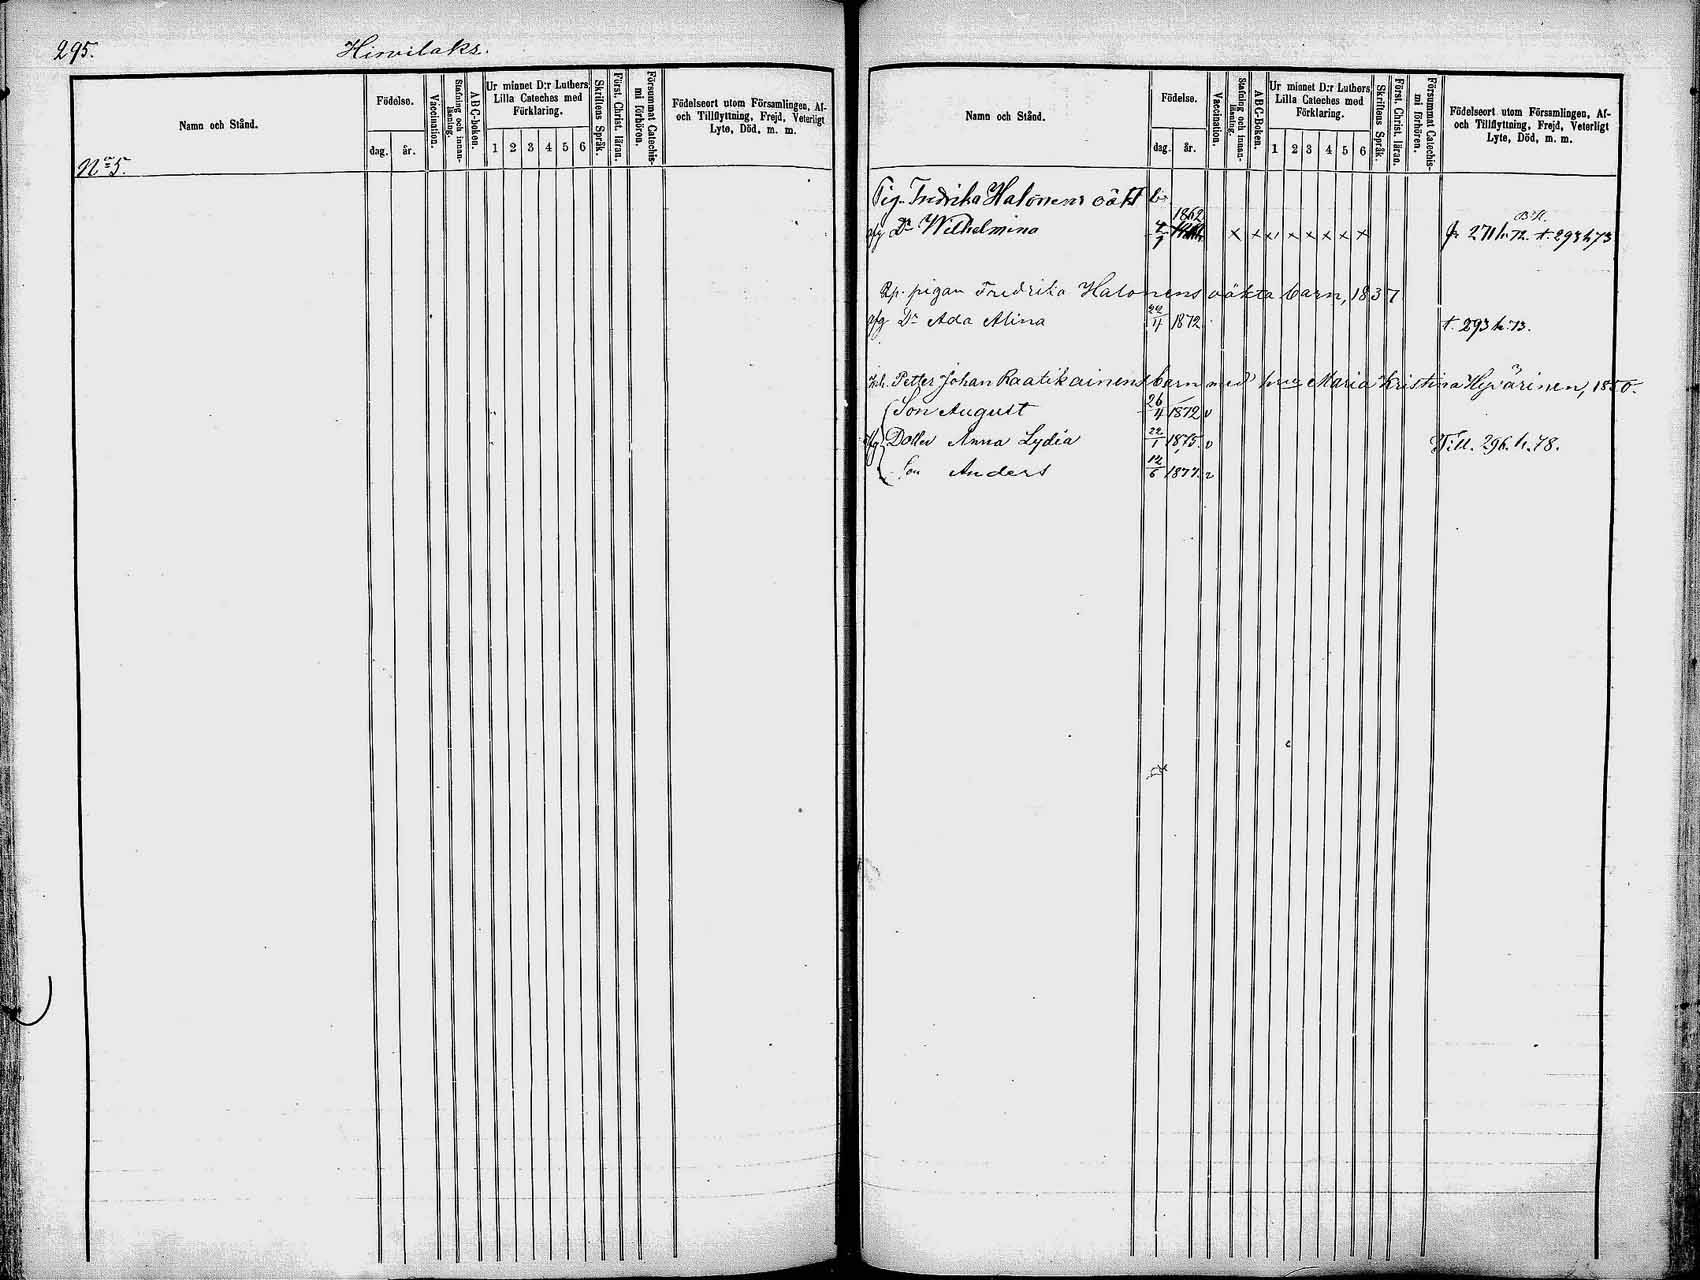 295.
Hirvilaks.
Namn och Stånd.
Födelse.
dag.
år.
Vaccination.
Stafning och innanläsning.
ABC-Boken.
Ur minnet D:r Luthers Lilla Cateches med Förklaring.
1 2 3 4 5 6
Skriftens Språk.
Först. Christ. läran.
Försummat Catechismi förhören.
Födelseort utom Församlingen, Af- och Tillflyttning, Frejd, Veterligt Lyte, Död, m. m.
No 5.
Namn och Stånd.
Födelse.
dag.
år.
Vaccination.
Stafning och innanläsning.
ABC-Boken.
Ur minnet D:r Luthers Lilla Cateches med Förklaring.
1 2 3 4 5 6
Skriftens Språk.
Först. Christ. läran.
Försummat Catechismi förhören.
Födelseort utom Församlingen, Af- och Tillflyttning, Frejd, Veterligt Lyte, Död, m. m.
Pig. Fredrika Halonens oäkt b.
afg Dr Wilhelmina 1862 x x x x x x x x fr 271 h. 72. t. 293 h 73
Rp. pigan Fredrika Halonens oäkta barn, 1837
afg Dr Ada Alina 22/4 1872 t. 293 h. 73.
Petter Johan Raatikainens barn med hu Maria Kristina Hyvärinen, 1850.
Son August 26/4 1872 v
afg Dotter Anna Lydia 22/1 1875. v Till. 296. h. 78.
Son Anders 12/6 1877. v